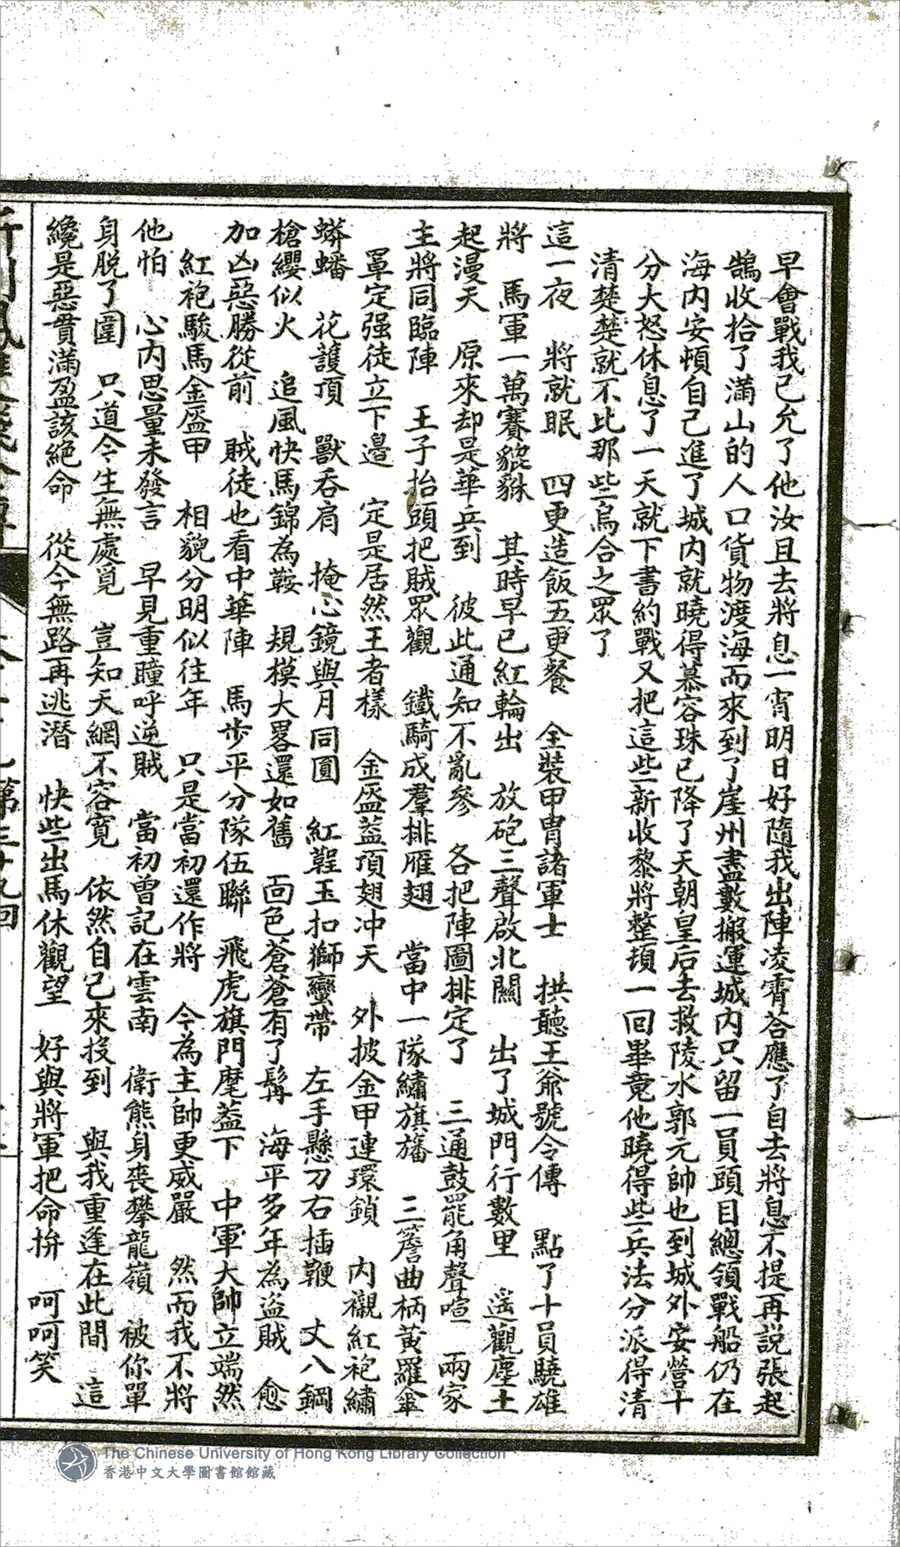 早會戰我已允了他汝且去將息一宵明日好隨我出陣凌霄荅應了自去將息不提再説張起
鵠收拾了滿山的人口貨物渡海而來到了崖州盡數搬運城內只留一員頭目總領戰船仍在
海內安頓自己進了城內就曉得慕容珠已降了天朝皇后去救陵水郭元帥也到城外安營十
分大怒休息了一天就下書約戰又把這些新收黎將整頓一回畢竟他曉得些兵法分派得清
清楚楚就不比那些烏合之眾了
這一夜　將就眠　四更造飯五更餐　全裝甲冑諸軍士　拱聽王爺號令傳　點了十員驍雄
將　馬軍一萬賽貔貅　其時早已紅輪出　放砲三聲啟北關　出了城門行數里　遙觀塵土
起漫天　原來却是華兵到　彼此通知不亂參　各把陣圖排定了　三通鼓罷角聲喧　兩家
主將同臨陣　王子抬頭把賊眾觀　鐵騎成羣排雁翅　當中一隊繡旗旛　三簷曲柄黃羅傘
罩定强徒立下邊　定是居然王者樣　金盔蓋頂翅冲天　外披金甲連環鎖　內襯紅袍繡
蟒蟠　花護項　獸吞肩　掩心鏡與月同圓　紅鞓玉扣獅蠻帶　左手懸刀右插鞭　丈八鋼
槍纓似火　追風快馬錦為鞍　規模大畧還如舊　面色蒼蒼有了髯　海平多年為盗賊　愈
加凶惡勝從前　賊徒也看中華陣　馬步平分隊伍聯　飛虎旗門麾蓋下　中軍大帥立端然
紅袍駿馬金盔甲　相貌分明似往年　只是當初還作將　今為主帥更威嚴　然而我不將
他怕　心內思量未發言　早見重瞳呼逆賊　當初曾記在雲南　衛熊身喪攀龍嶺　被你單
身脫了圍　只道今生無處覓　豈知天網不容寬　依然自己來投到　與我重逢在此間　這
纔是惡貫滿盈該絕命　從今無路再逃潛　快些出馬休觀望　好與將軍把命拚　呵呵笑
第三十九回
The Chinese University of Hong Kong Library Collection
香港中文大學圖書館館藏